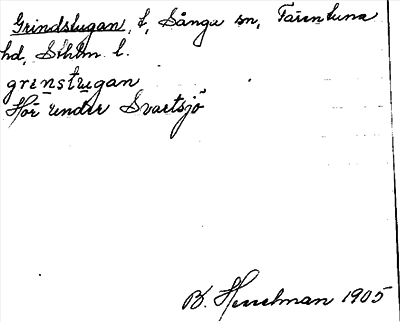 Grindstugan, t, Sånga sn, Färentuna
hd, Sthlm l.
grinstugan
Hör under Svartsjö
B. Hesselman 1905